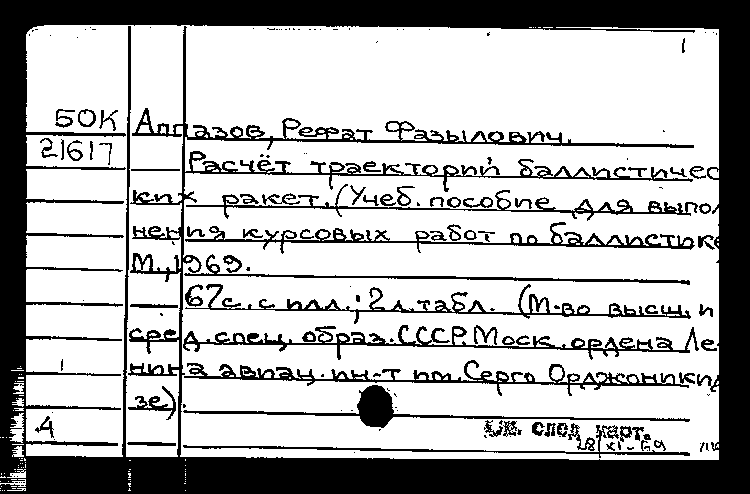 1
БОК Аппазов, Рефат Фазылович.
21617 Расчёт траекторий баллистичес
ких ракет. (Учеб. пособие для выпол
нения курсовых работ по баллистике
М., 1969.
67с. с илл.; 2 л. табл. (М-во высш. и
сред. спец. образ. СССР. Моск. ордена Ле-
1 нина авиац. ин-т им. Серго Орджоникид
зе).
4 См. след. карт.
28/XI-69